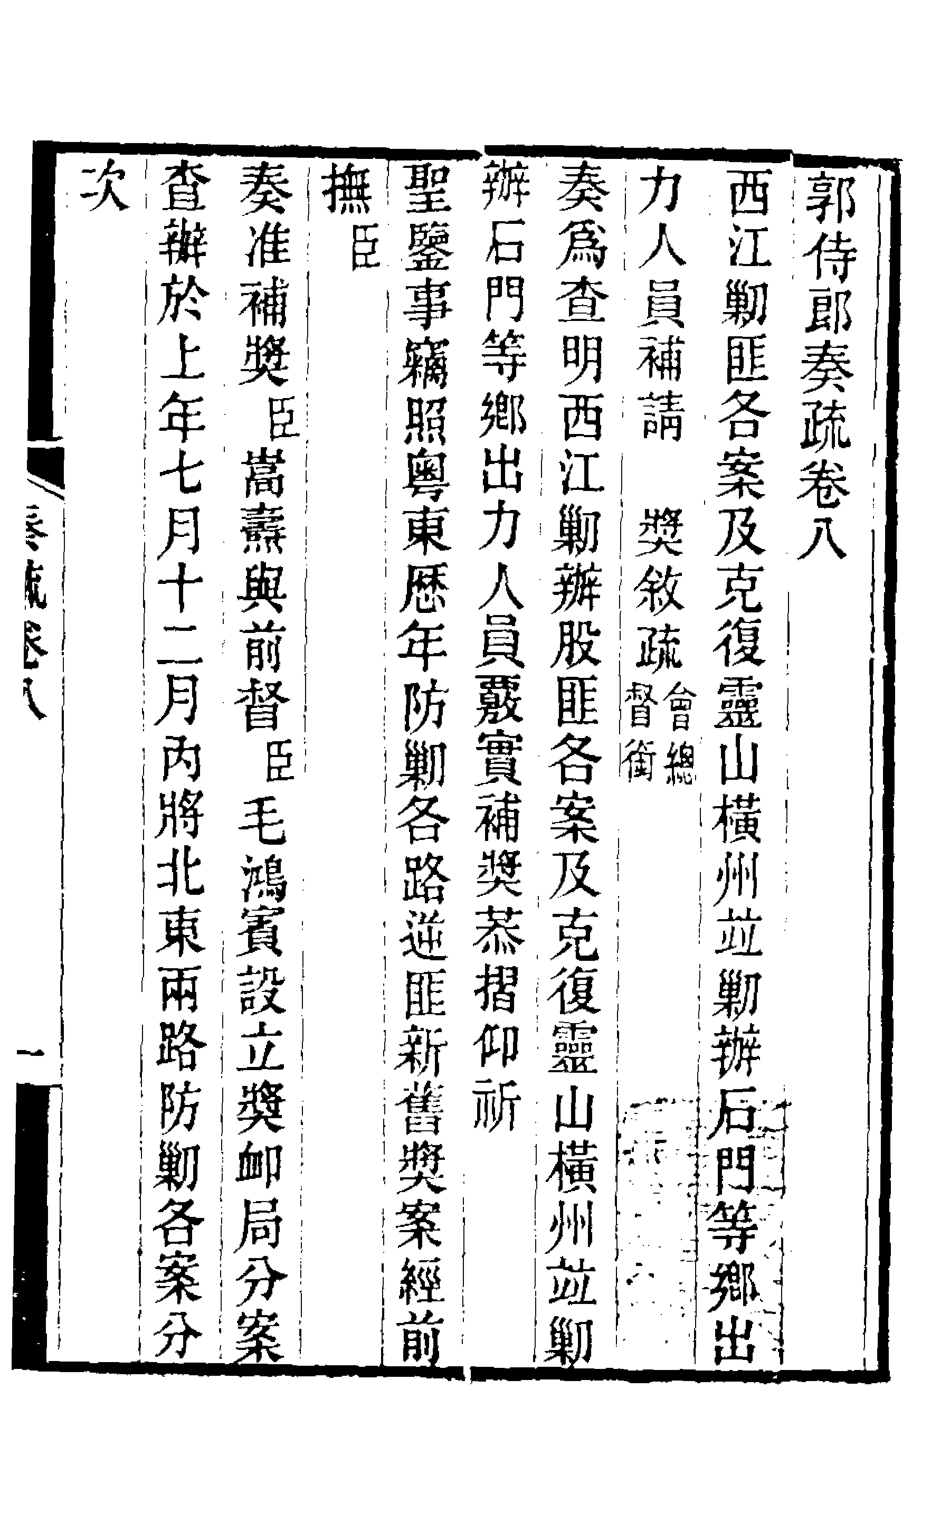 郭侍郎奏疏卷八
西江剿匪各案及克復靈山橫州並剿辦石門等鄉出
力人員補請　獎敘疏會總督銜
奏爲查明西江剿辦股匪各案及克復靈山橫州並剿
辦石門等鄉出力人員覈實補獎恭摺仰祈
聖鑒事竊照粵東歷年防剿各路逆匪新舊獎案經前
撫臣
奏准補獎臣嵩燾與前督臣毛鴻賓設立獎卹局分案
查辦於上年七月十二月內將北東兩路防剿各案分
次
奏疏卷八
一